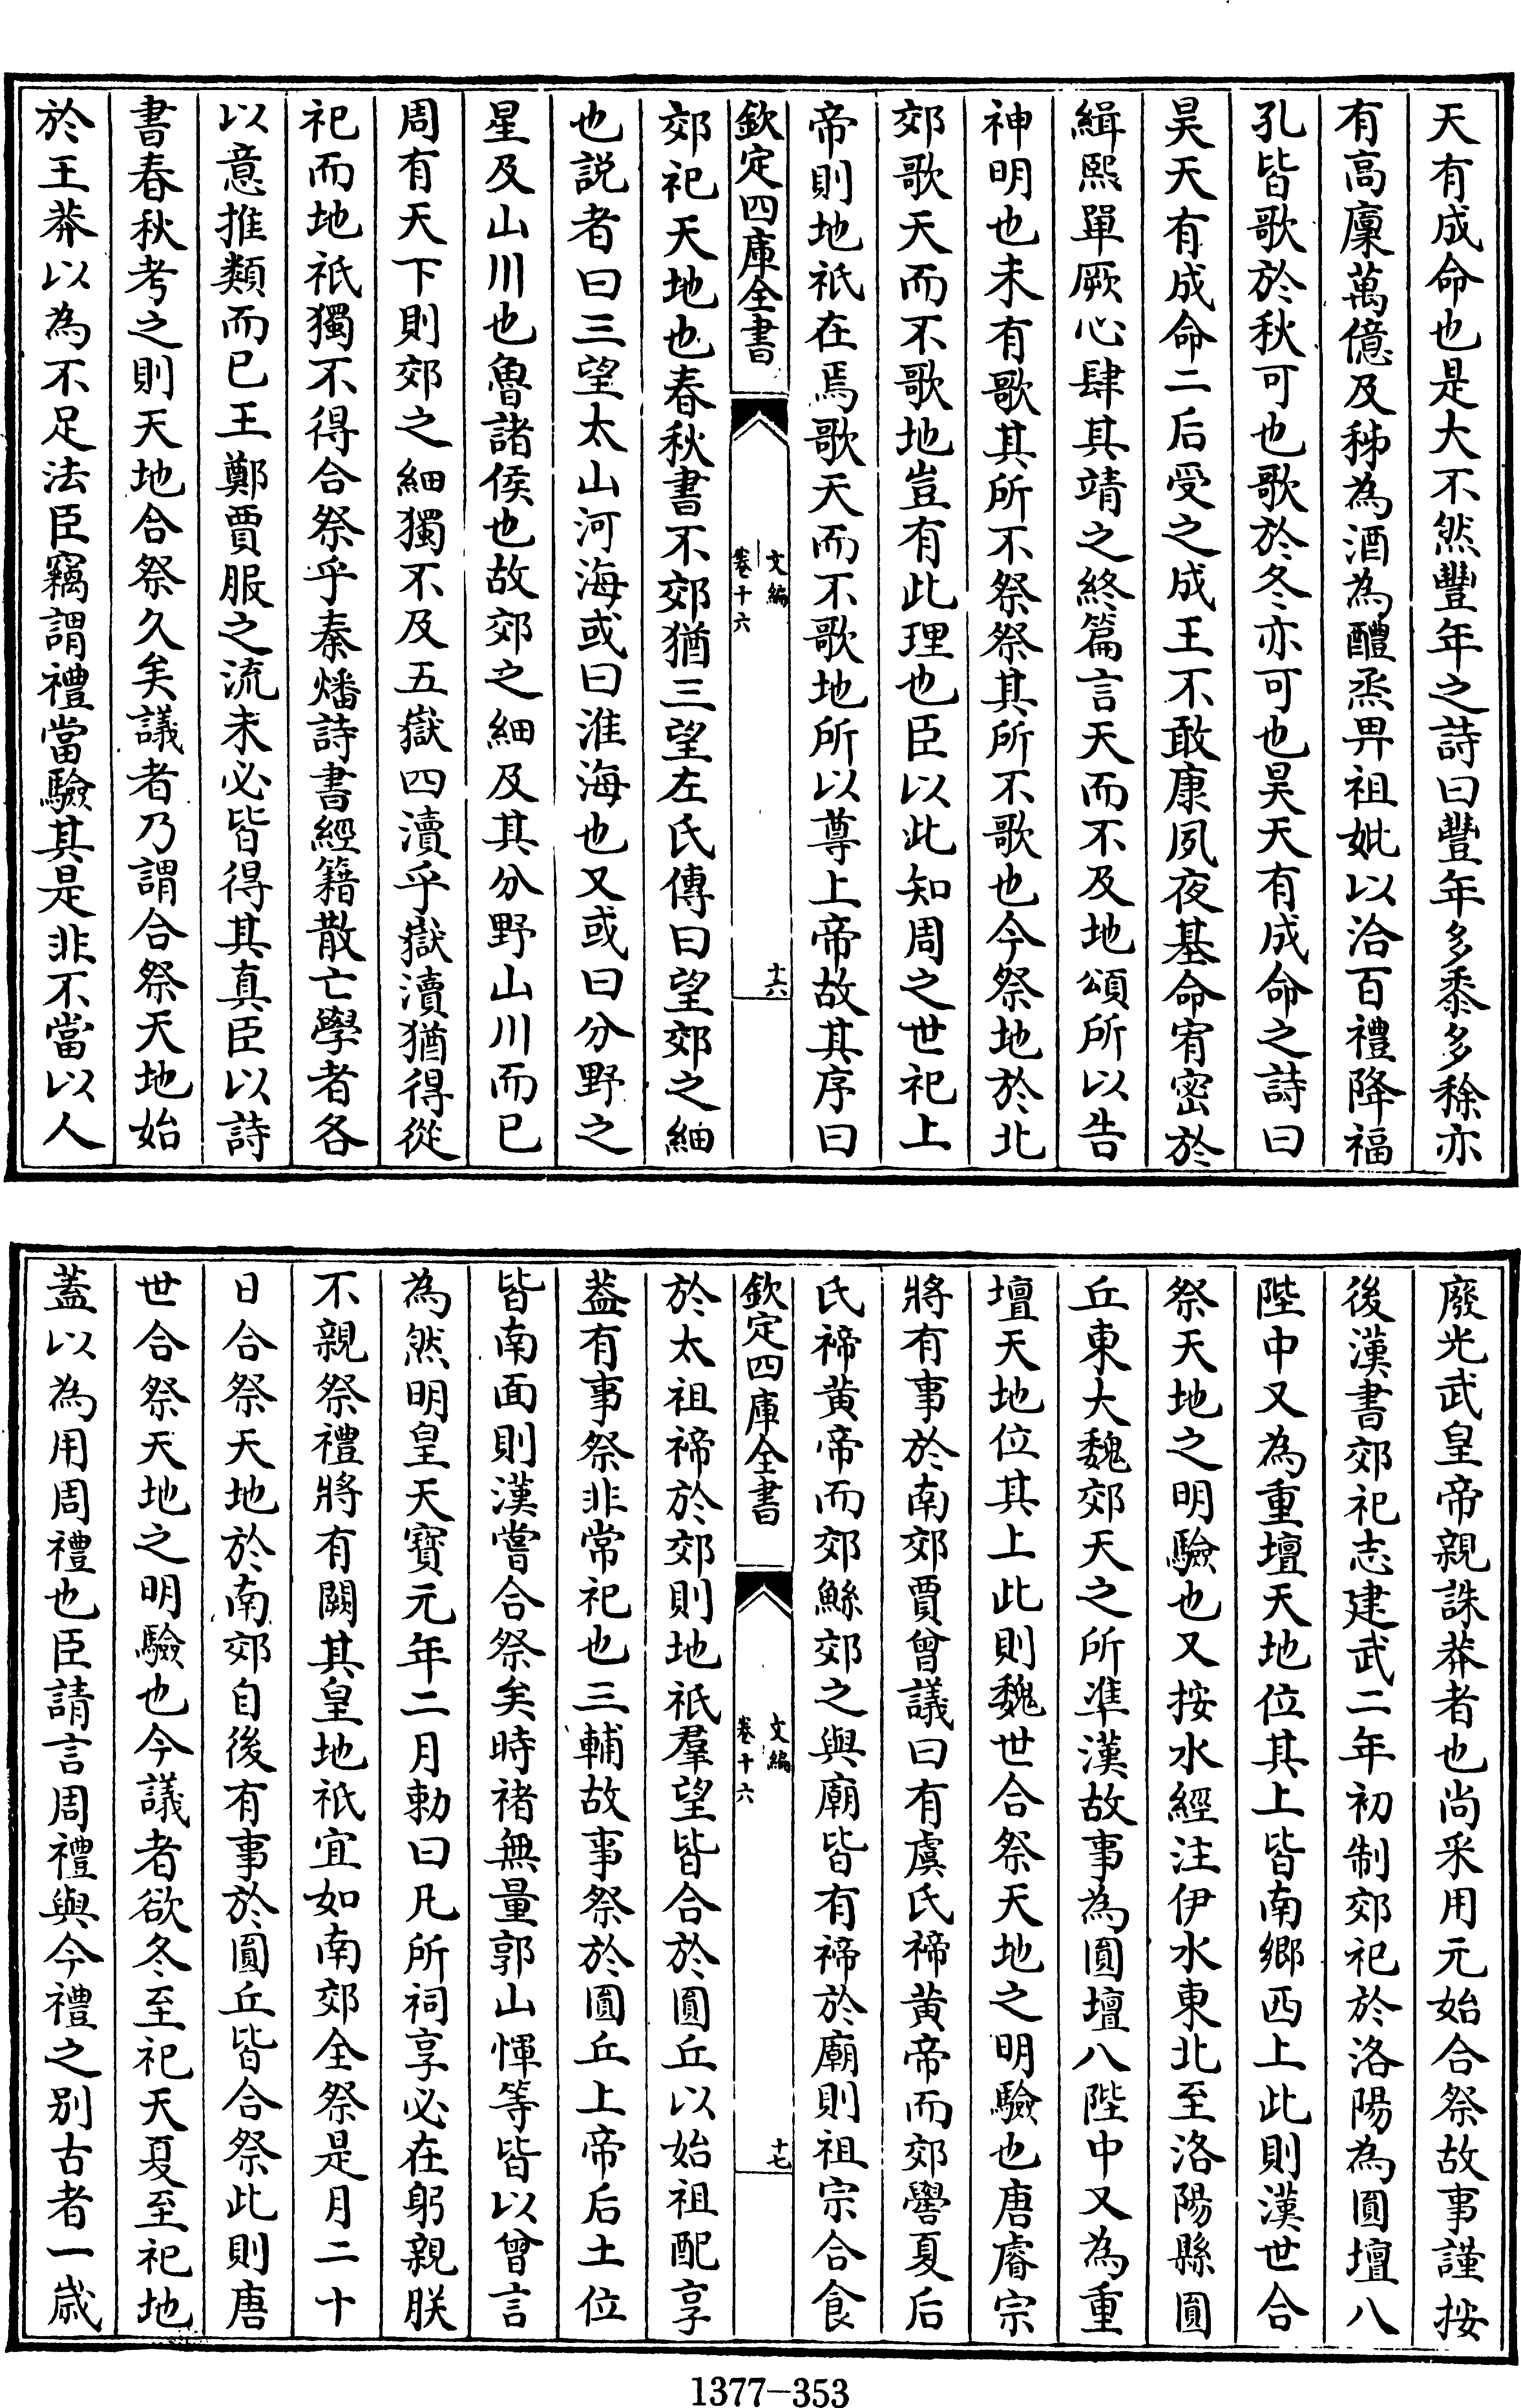 天有成命也是大不然豐年之詩曰豐年多黍多稌亦
有高廪萬億及秭為酒為醴烝畀祖妣以洽百禮降福
孔皆歌於秋可也歌於冬亦可也昊天有成命之詩曰
昊天有成命二后受之成王不敢康夙夜基命宥密於
緝熙單厥心肆其靖之終篇言天而不及地頌所以告
神明也未有歌其所不祭祭其所不歌也今祭地於北
郊歌天而不歌地豈有此理也臣以此知周之世祀上
帝則地祇在焉歌天而不歌地所以尊上帝故其序曰
欽定四庫全書
文編
卷十六
十六
郊祀天地也春秋書不郊猶三望左氏傳曰望郊之細
也説者曰三望太山河海或曰淮海也又或曰分野之
星及山川也魯諸侯也故郊之細及其分野山川而已
周有天下則郊之細獨不及五嶽四瀆乎嶽瀆猶得從
祀而地祇獨不得合祭乎秦燔詩書經籍散亡學者各
以意推類而已王鄭賈服之流未必皆得其真臣以詩
書春秋考之則天地合祭久矣議者乃謂合祭天地始
於王莽以為不足法臣竊謂禮當驗其是非不當以人
廢光武皇帝親誅莽者也尚采用元始合祭故事謹按
後漢書郊祀志建武二年初制郊祀於洛陽為圓壇八
陛中又為重壇天地位其上皆南鄉西上此則漢世合
祭天地之明驗也又按水經注伊水東北至洛陽縣圓
丘東大魏郊天之所準漢故事為圓壇八陛中又為重
壇天地位其上此則魏世合祭天地之明驗也唐睿宗
將有事於南郊賈曾議曰有虞氏禘黄帝而郊嚳夏后
氏禘黄帝而郊鯀郊之與廟皆有禘於廟則祖宗合食
欽定四庫全書
文編
卷十六
十七
於太祖禘於郊則地祇羣望皆合於圓丘以始祖配享
葢有事祭非常祀也三輔故事祭於圓丘上帝后土位
皆南面則漢嘗合祭矣時褚無量郭山惲等皆以曾言
為然明皇天寶元年二月勅曰凡所祠享必在躬親朕
不親祭禮將有闕其皇地祇宜如南郊合祭是月二十
日合祭天地於南郊自後有事於圓丘皆合祭此則唐
世合祭天地之明驗也今議者欲冬至祀天夏至祀地
蓋以為用周禮也臣請言周禮與今禮之别古者一歲
1377—353